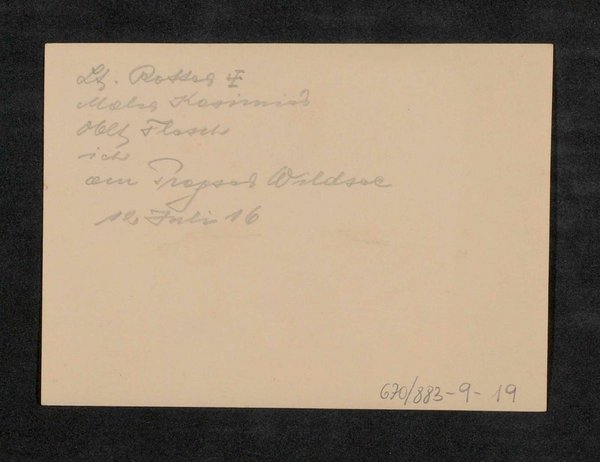 Lt. Rotter I
Maler Kasimir
Oblt Flasch
ich
am Tropser Wildsee
12 Juli 16
670/883-9-19